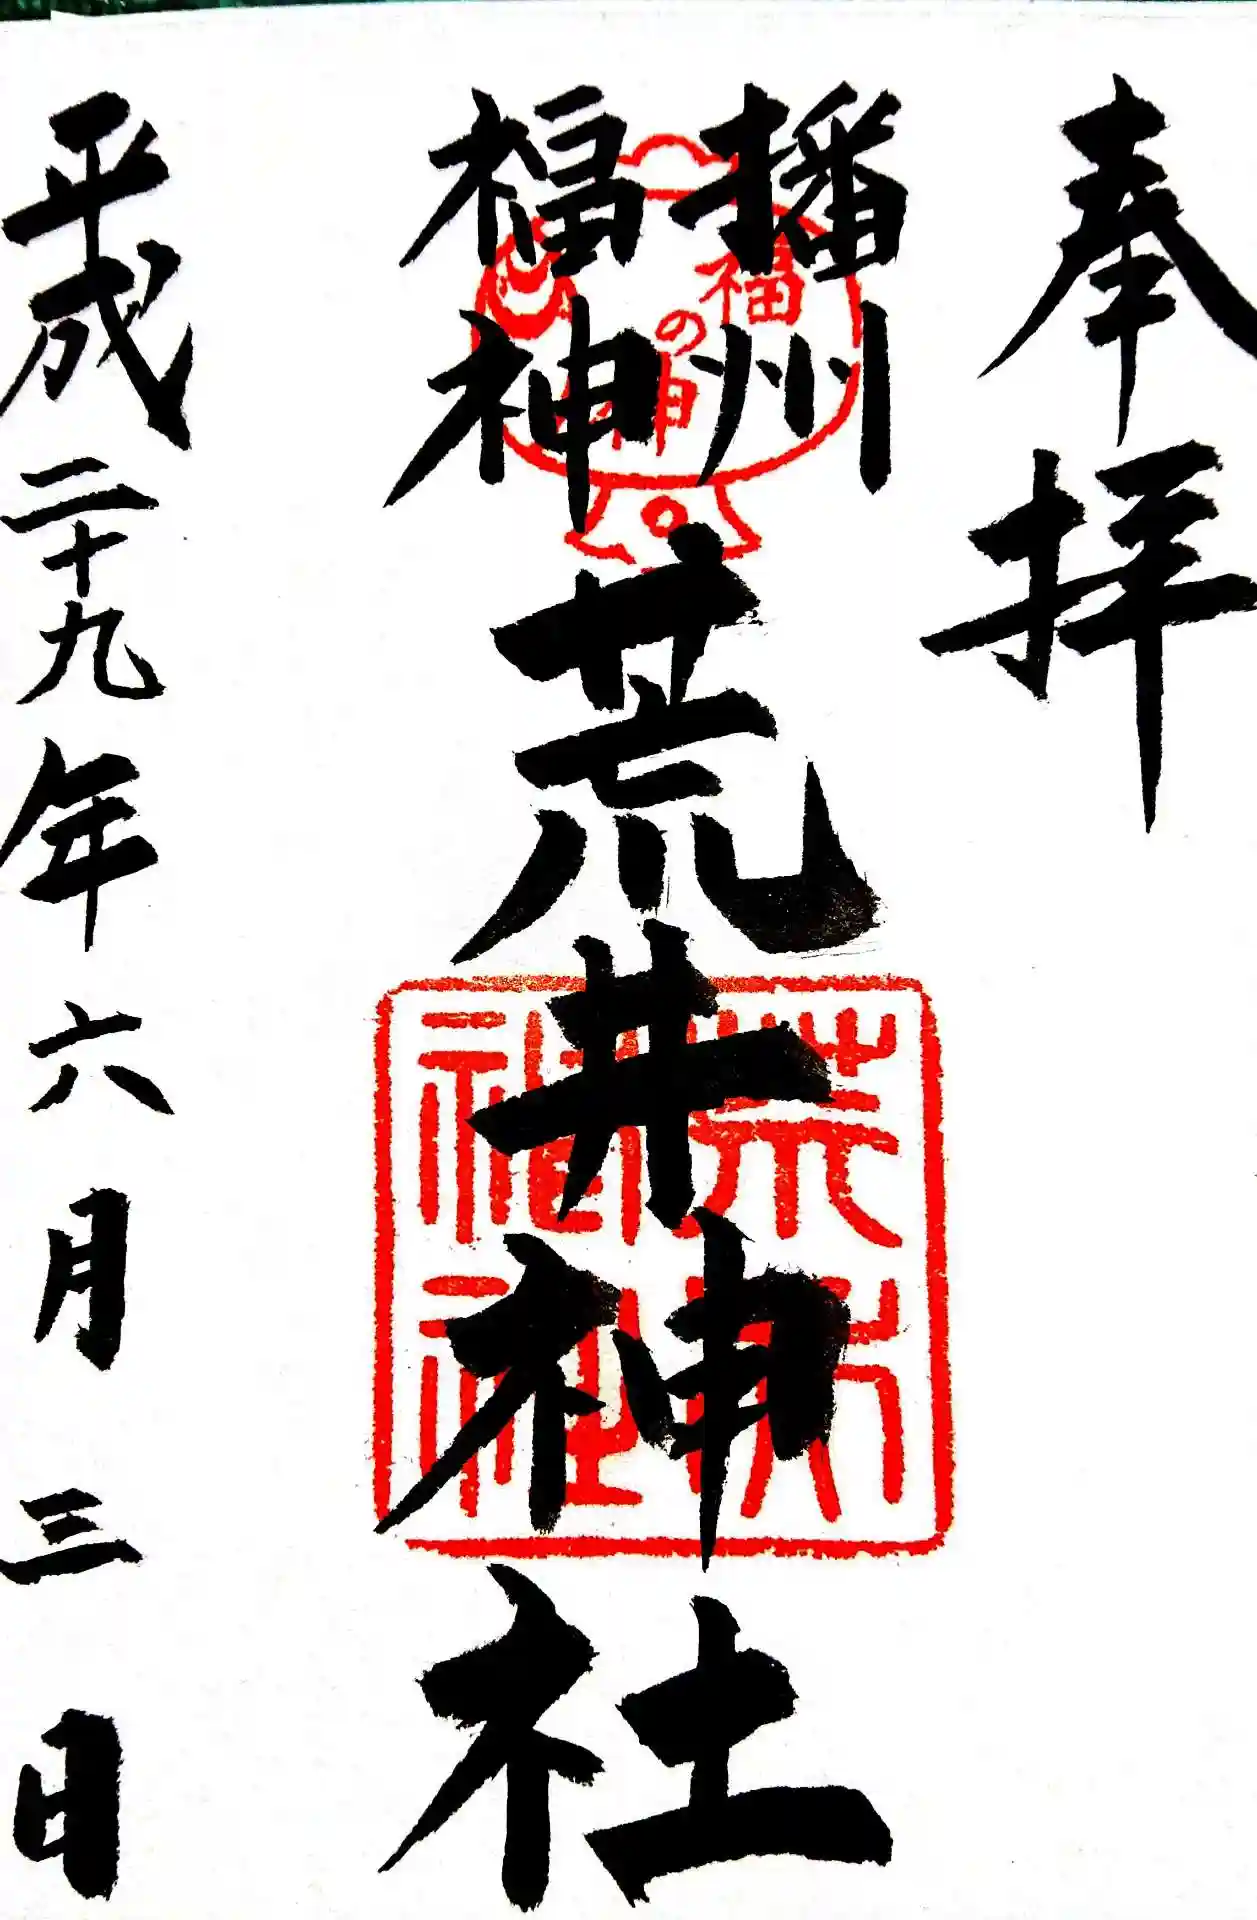 奉拝
播州
福神
荒井神社
福の神
荒井神社
平成二十九年六月三日